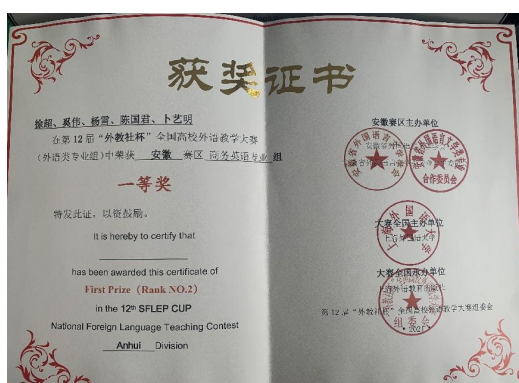 获奖证书
徐超、奚伟、杨雪、陈国君、卜艺明
在第12届“外教社杯”全国高校外语教学大赛
(外语类专业组)中荣获 安徽 赛区 商务英语专业 组
一等奖
特发此证，以资鼓励。
It is hereby to certify that
has been awarded this certificate of
First Prize (Rank NO.2)
in the 12th SFLEP CUP
National Foreign Language Teaching Contest
Anhui Division
安徽赛区主办单位
合作委员会
大赛全国主办单位
上海外国语大学
大赛全国承办单位
上海外语教育出版社
第12届“外教社杯”全国高校外语教学大赛组委会
组委会